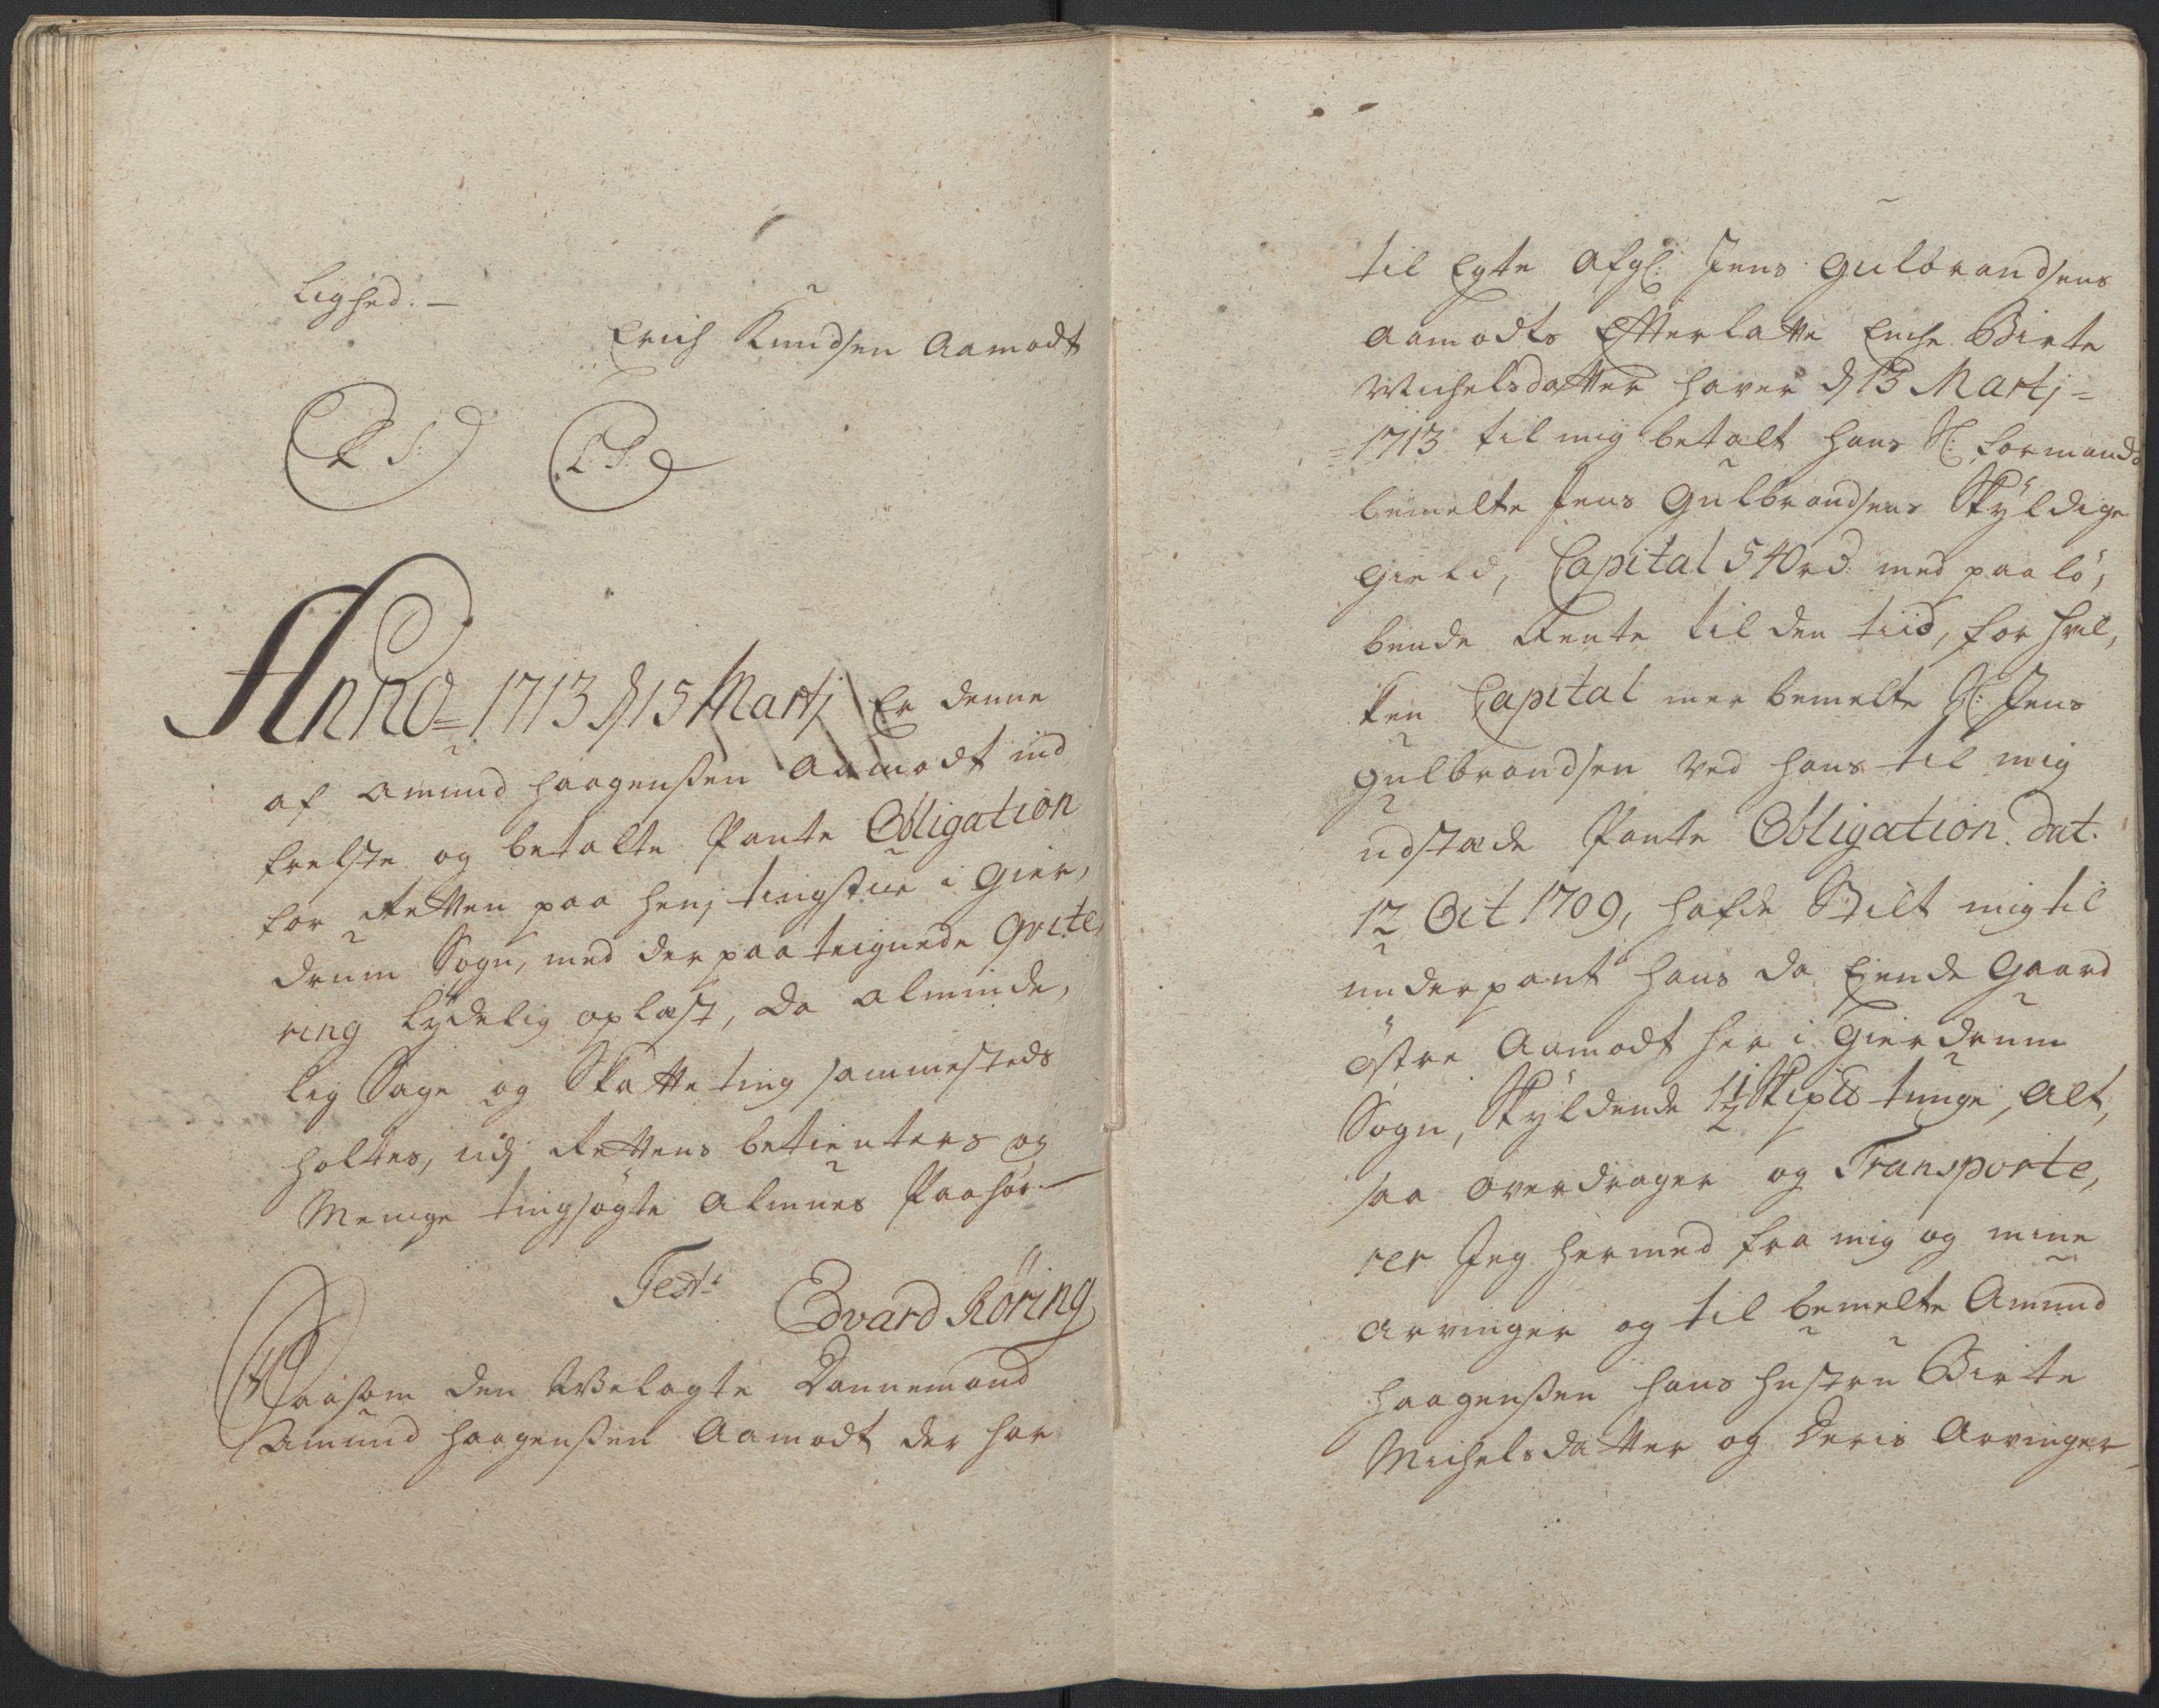 lighed. —
Erich Knudsen Aamodt
L S: L S:
Anno 1713 d 15 Martj Er denne
af Amund Haagenßen Aamodt ind
frelste og betalte Pante Obligation
for Retten paa Henj tingstue i Gier,
drum Sogn, med der paa teignede Qvite,
ring lydelig oplæst, da alminde,
lig Sage og Skatte ting sammesteds
holtes, udj Rettens betienters og
Menige tingsøgte Almues Paahør. —
Test:
Edvard Röring
Saasom den Welagte Dannemand
Amund Haagenßen Aamodt der har
til Egte Afgl: Jens Gulbrandsens
Aamodts Efterlatte Enche Birte
Michelsdatter haver d 13 Martj =
= 1713 til mig betalt hans Sl: formands
bemelte Jens Gulbrandsens Skyldige
gield, Capital 540 rd: med paalö,
bende Rente til den tiid, for hvil,
ken Capital mer bemelte Sl: Jens
Gulbrandsen ved hans til mig
udstæde Pante Obligation dat.
12 Oct 1709, hafde Stilt mig til
underpant hans da Ejende Gaard
östre Aamodt her i Gierdrum
Sogn, Skyldende 1 1/2 Skipld tunge, alt,
saa overdrager og Transporte,
rer Jeg hermed fra mig og mine
Arvinger og til bemelte Amund
Haagenßen hans hustru Birte
Michelsdatter og Deris Arvinger